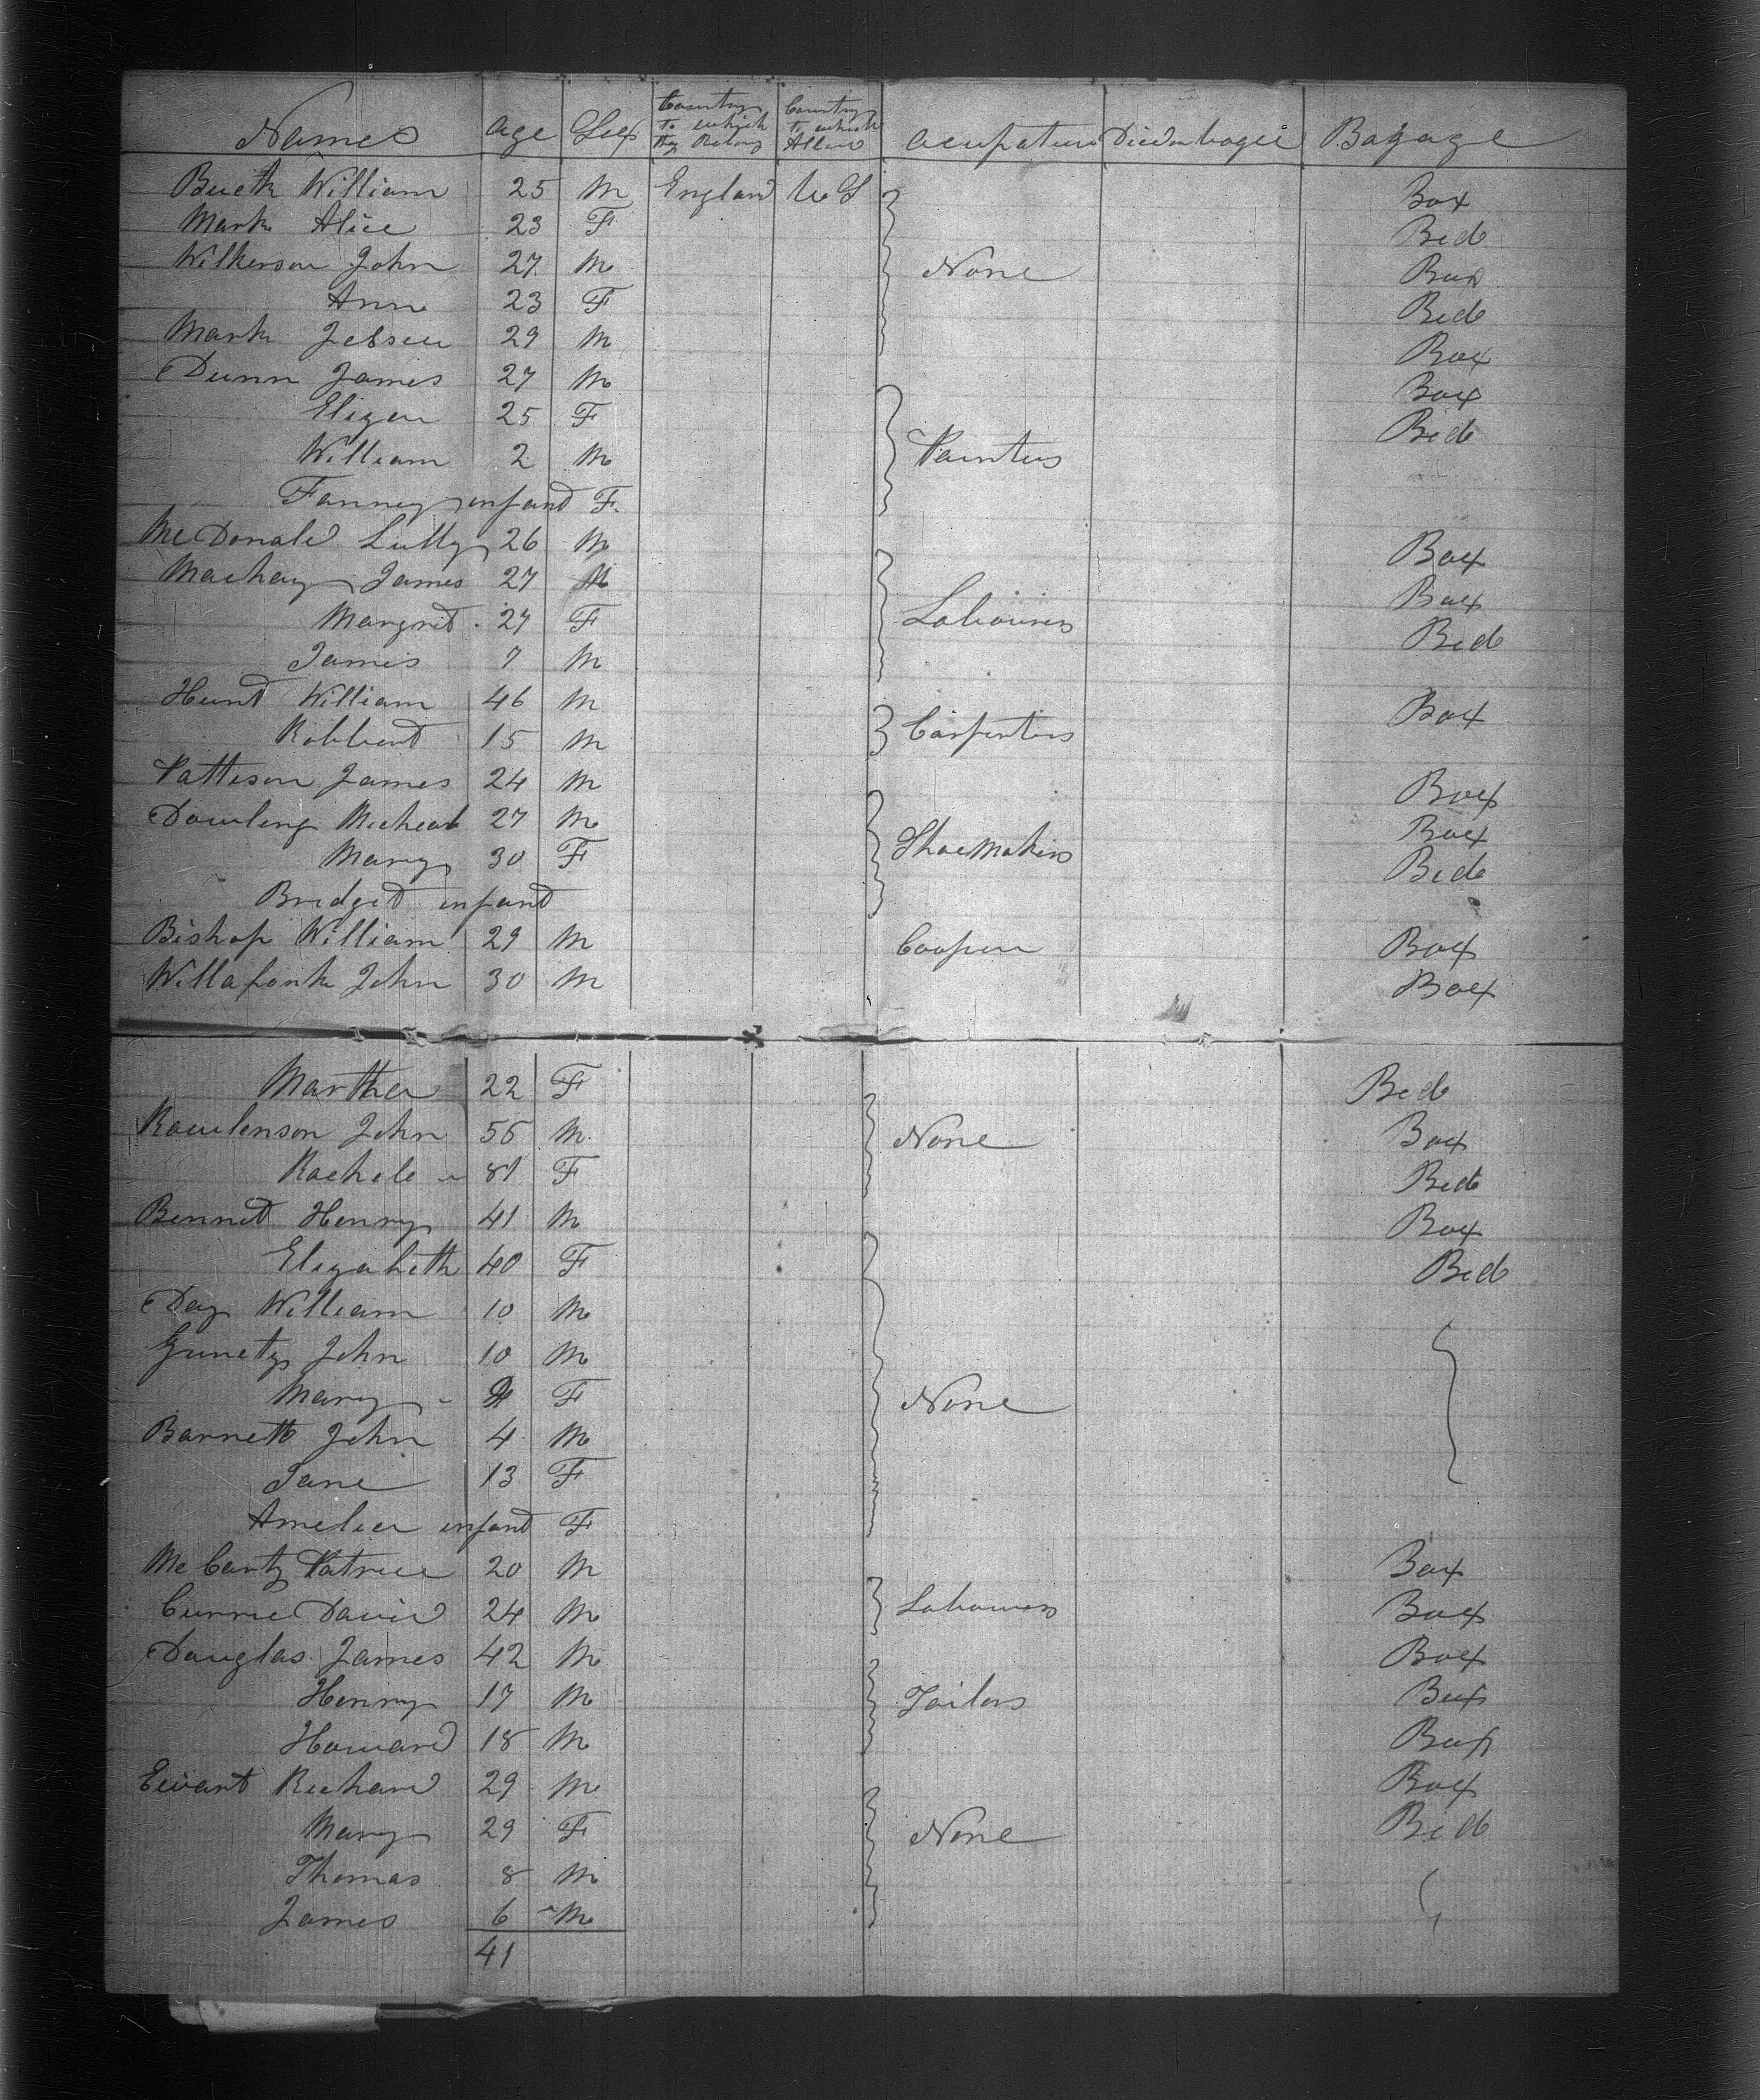 Names age Sex Country to which they Belong Country to which Acupation Died on Bagage
Buck William 25 M England U S Box
Mark Alice 23 F Bed
Wilkerson John 27 M None Box
Ann 23 F Bed
Mark 29 M Box
Dunn James 27 M Box
Elizer 25 F Bed
William 2 M Painters
Fanney infant F
McDonald 26 M Box
Mackay James 27 M Box
Margret 27 F Labourers Bed
James 7 M
Hunt William 46 M Box
Robbert 15 M Carpenters
Pattison James 24 M Box
Dowling Micheal 27 M Box
Mary 30 F ShoeMakers Bed
Bridget infant
Bishop William 29 M Cooper Box
John 30 M Box
Marther 22 F Bed
Rowlenson John 55 M None Box
Rachele 81 F Bed
Bennet Henry 41 M Box
Elizabeth 40 F Bed
Day William 10 M
John 10 M
Mary F None
Barnett John 4 M
Jane 13 F
Amelier infant F
McCarty 20 M Box
Currie David 24 M Labourers Box
Douglas James 42 M Box
Henry 17 M Tailors Box
Howard 18 M Box
Ewart Richard 29 M Box
Mary 29 F None Bed
Thomas 8 M
James 6 M
41